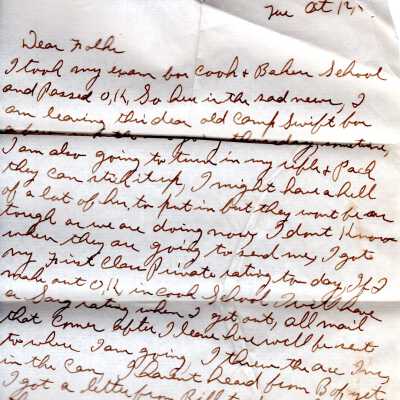 Tue Oct 12,
Dear Folks
I took my exam for Cook & Bakers School
and Passed O.K. So here is the sad news, I
am leaving this dear old Camp Swift for
I am also going to turn in my rifle & Pack
they can stick it up, I might have a hell
of a lot of hrs. to put in but they wont be as
tough as we are doing now, I dont know
when they are going to send me, I got
my First Class Private rating to day, If I
make out O.K. in cook School I will have
a Sarg rating when I get out, all mail
that Comes after I leave here will be sent
to where I am going, I threw the ace I was
in the Can, I havent heard from Bob yet
I got a letter from Bill